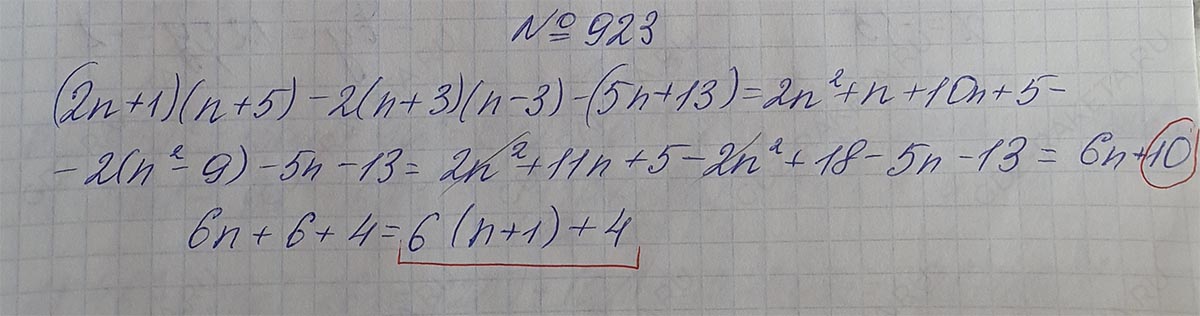 № 923
(2n+1)(n+5)-2(n+3)(n-3)-(5n+13)=2n²+n+10n+5-
-2(n²-9)-5n-13=2n²+11n+5-2n²+18-5n-13=6n+10
6n+6+4=6(n+1)+4